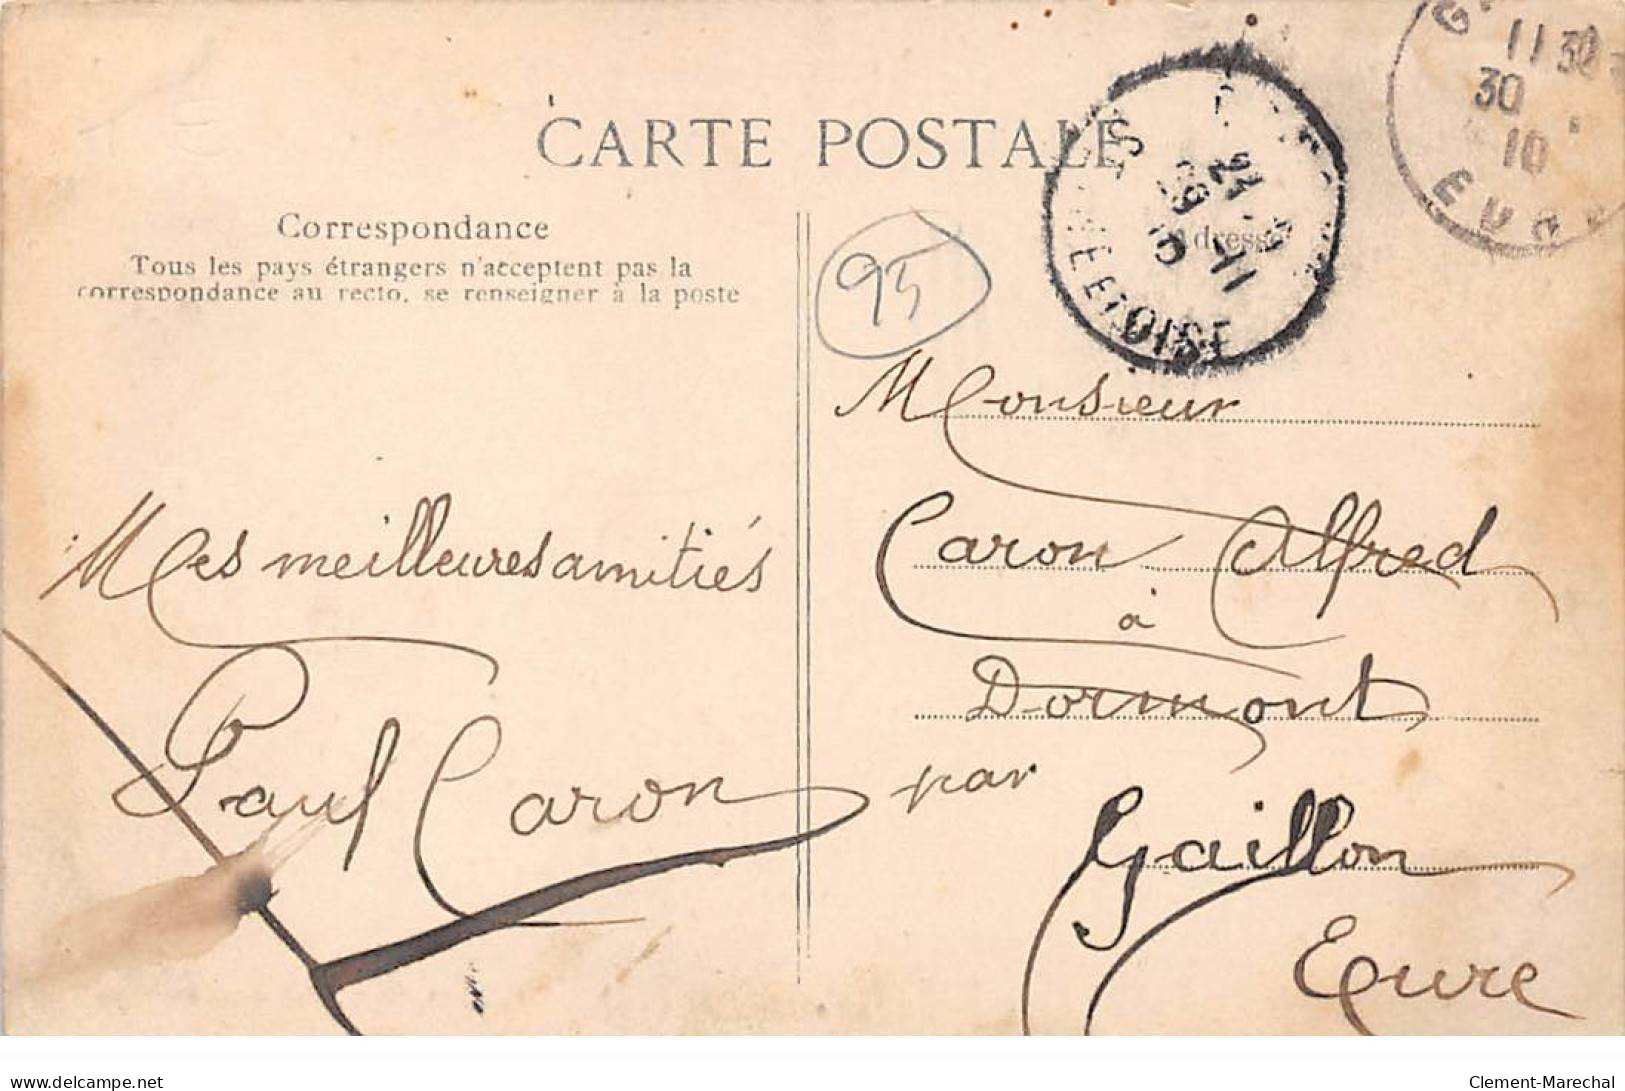 CARTE POSTALE
Correspondance
Tous les pays étrangers n'acceptent pas la
correspondance au recto, se renseigner à la poste
Mes meilleures amitiés
Paul Caron
95
Adresse
OISE
11 30
30
10
EURE
Monsieur
Caron Alfred
à
Dormont
par
Gaillon
Eure
delcampe.net
Clement-Marechal